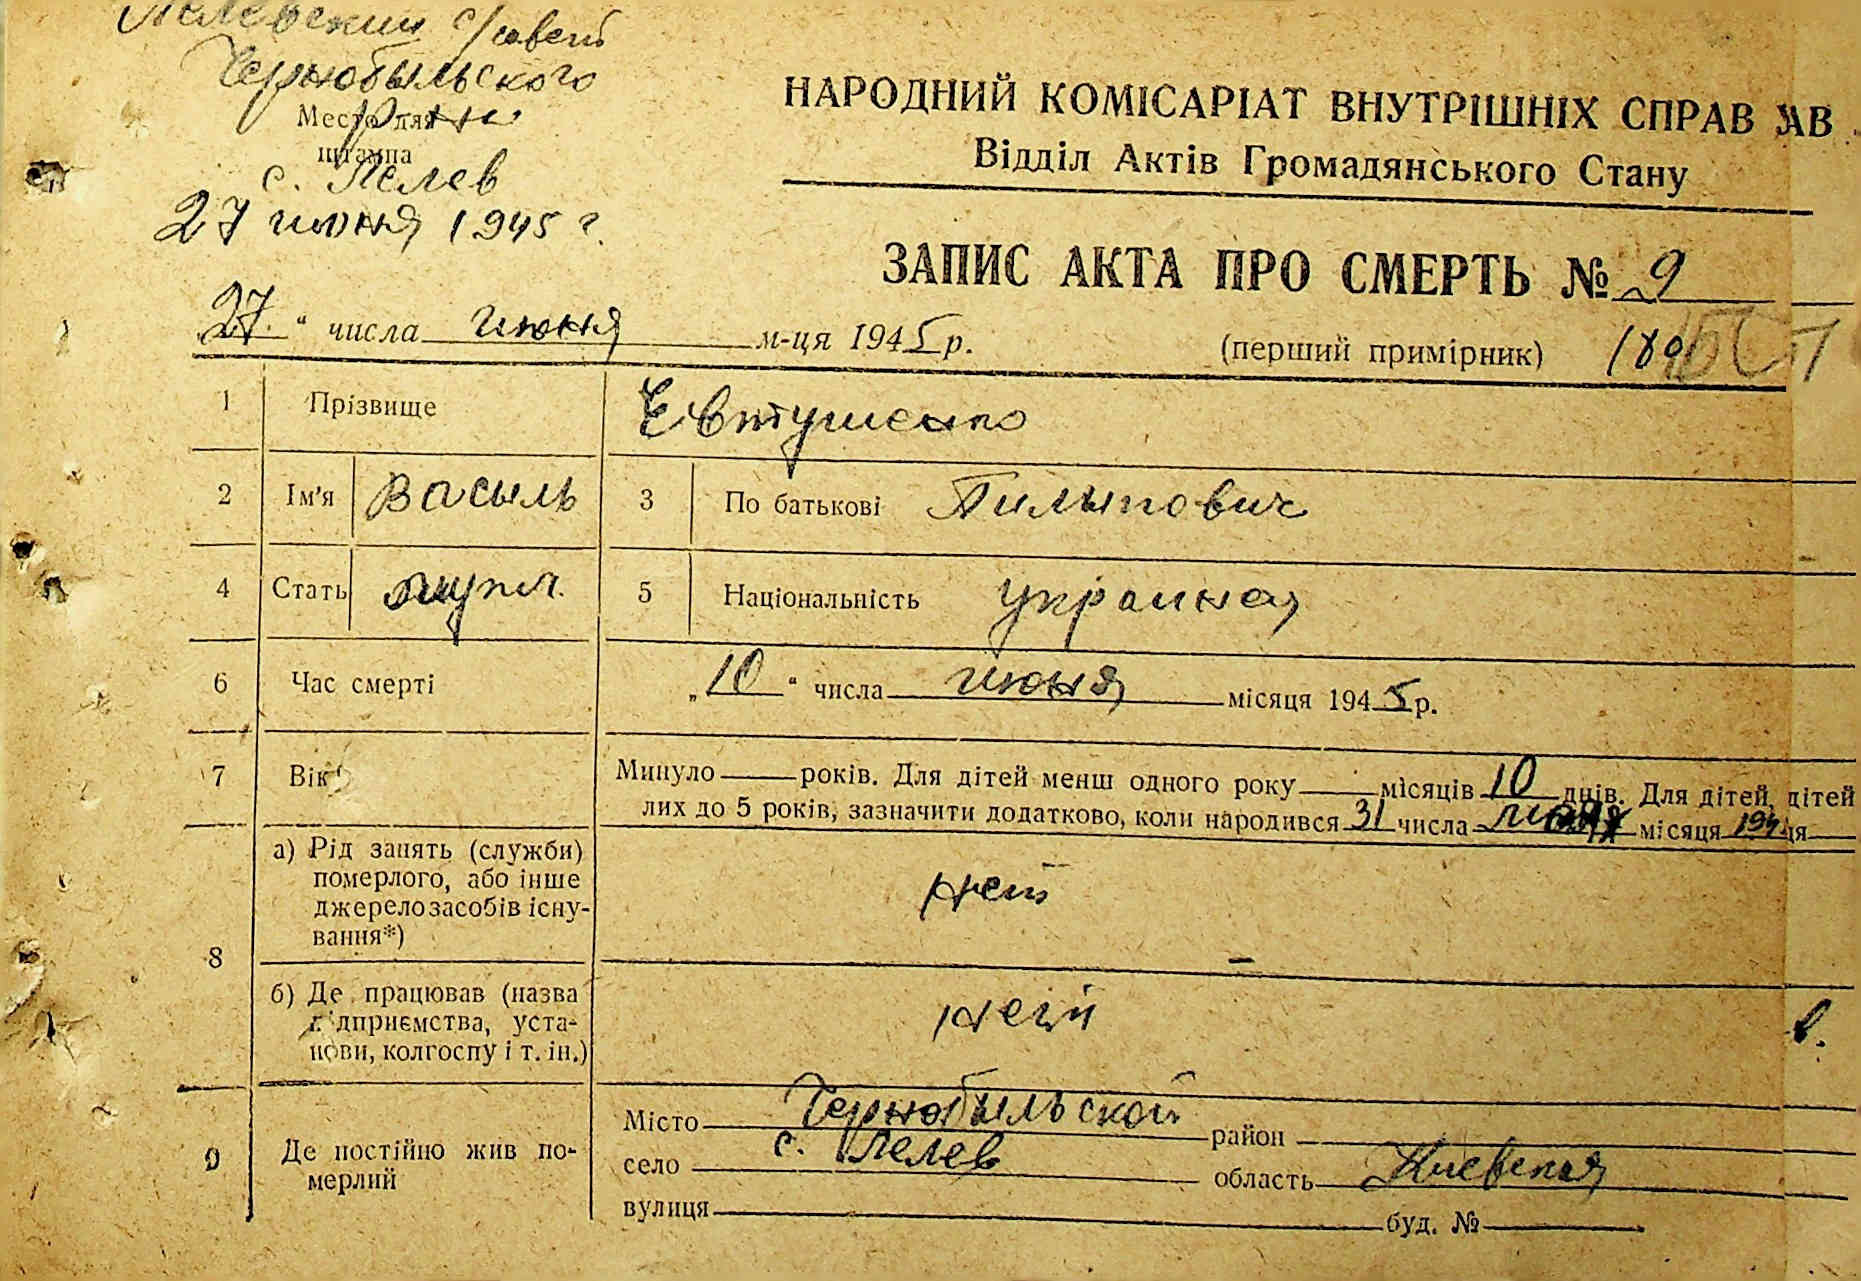 Лелевский с/совет
Чернобыльского
р-на
Место для
штампа
с. Лелев
27 июня 1945 г.
НАРОДНИЙ КОМІСАРІАТ ВНУТРІШНІХ СПРАВ
Відділ Актів Громадянського Стану
ЗАПИС АКТА ПРО СМЕРТЬ № 9
27 " числа июня м-ця 1945 р.
(перший примірник)
1 Прізвище Евтушенко
2 Ім'я Васыль 3 По батькові Пилыпович
4 Стать мужч. 5 Національність украинец
6 Час смерті „10“ числа июня місяця 1945 р.
7 Вік Минуло років. Для дітей менш одного року місяців 10 днів. Для дітей, дітей
лих до 5 років, зазначити додатково, коли народився 31 числа місяця 194
8
а) Рід занять (служби)
померлого, або інше
джерело засобів існу-
вання*)
нет
б) Де працював (назва
підприємства, уста-
нови, колгоспу і т. ін.)
нет
в.
9 Де постійно жив по-
мерлий
Місто Чернобыльской район
село с. Лелев область Киевская
вулиця буд. №